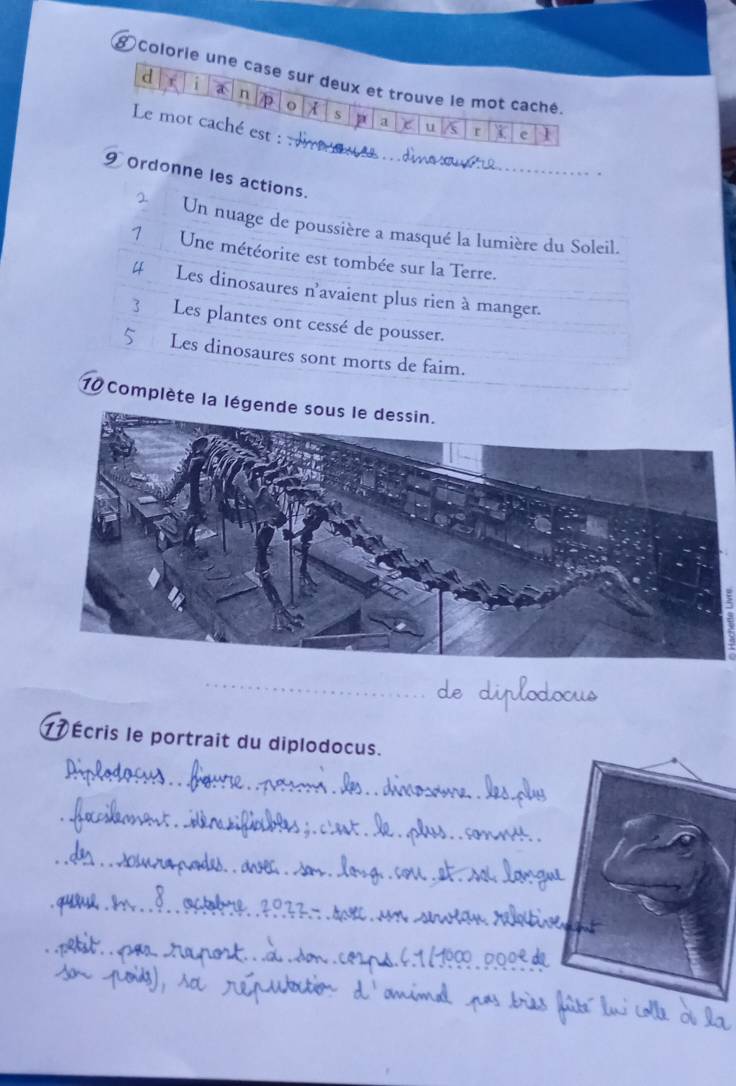 8 Colorie une case sur deux et trouve le mot caché.
d r i a n p o l s p a c u s r i e l
Le mot caché est : dinosaure
9 Ordonne les actions.
2 Un nuage de poussière a masqué la lumière du Soleil.
1 Une météorite est tombée sur la Terre.
4 Les dinosaures n'avaient plus rien à manger.
3 Les plantes ont cessé de pousser.
5 Les dinosaures sont morts de faim.
10 Complète la légende sous le dessin.
© Hachette Livre
de diplodocus
11 Écris le portrait du diplodocus.
Diplodocus figure parmi les dinosaure les plus
facilement identifiables ; c'est le plus connu
des sauropodes avec son long cou et sa longue
queue en 8 octobre 2022 - avec un cerveau relativement
petit par raport à son corps (1/1000 000e de
son poids), sa réputation d'animal pas très futé lui colle à la